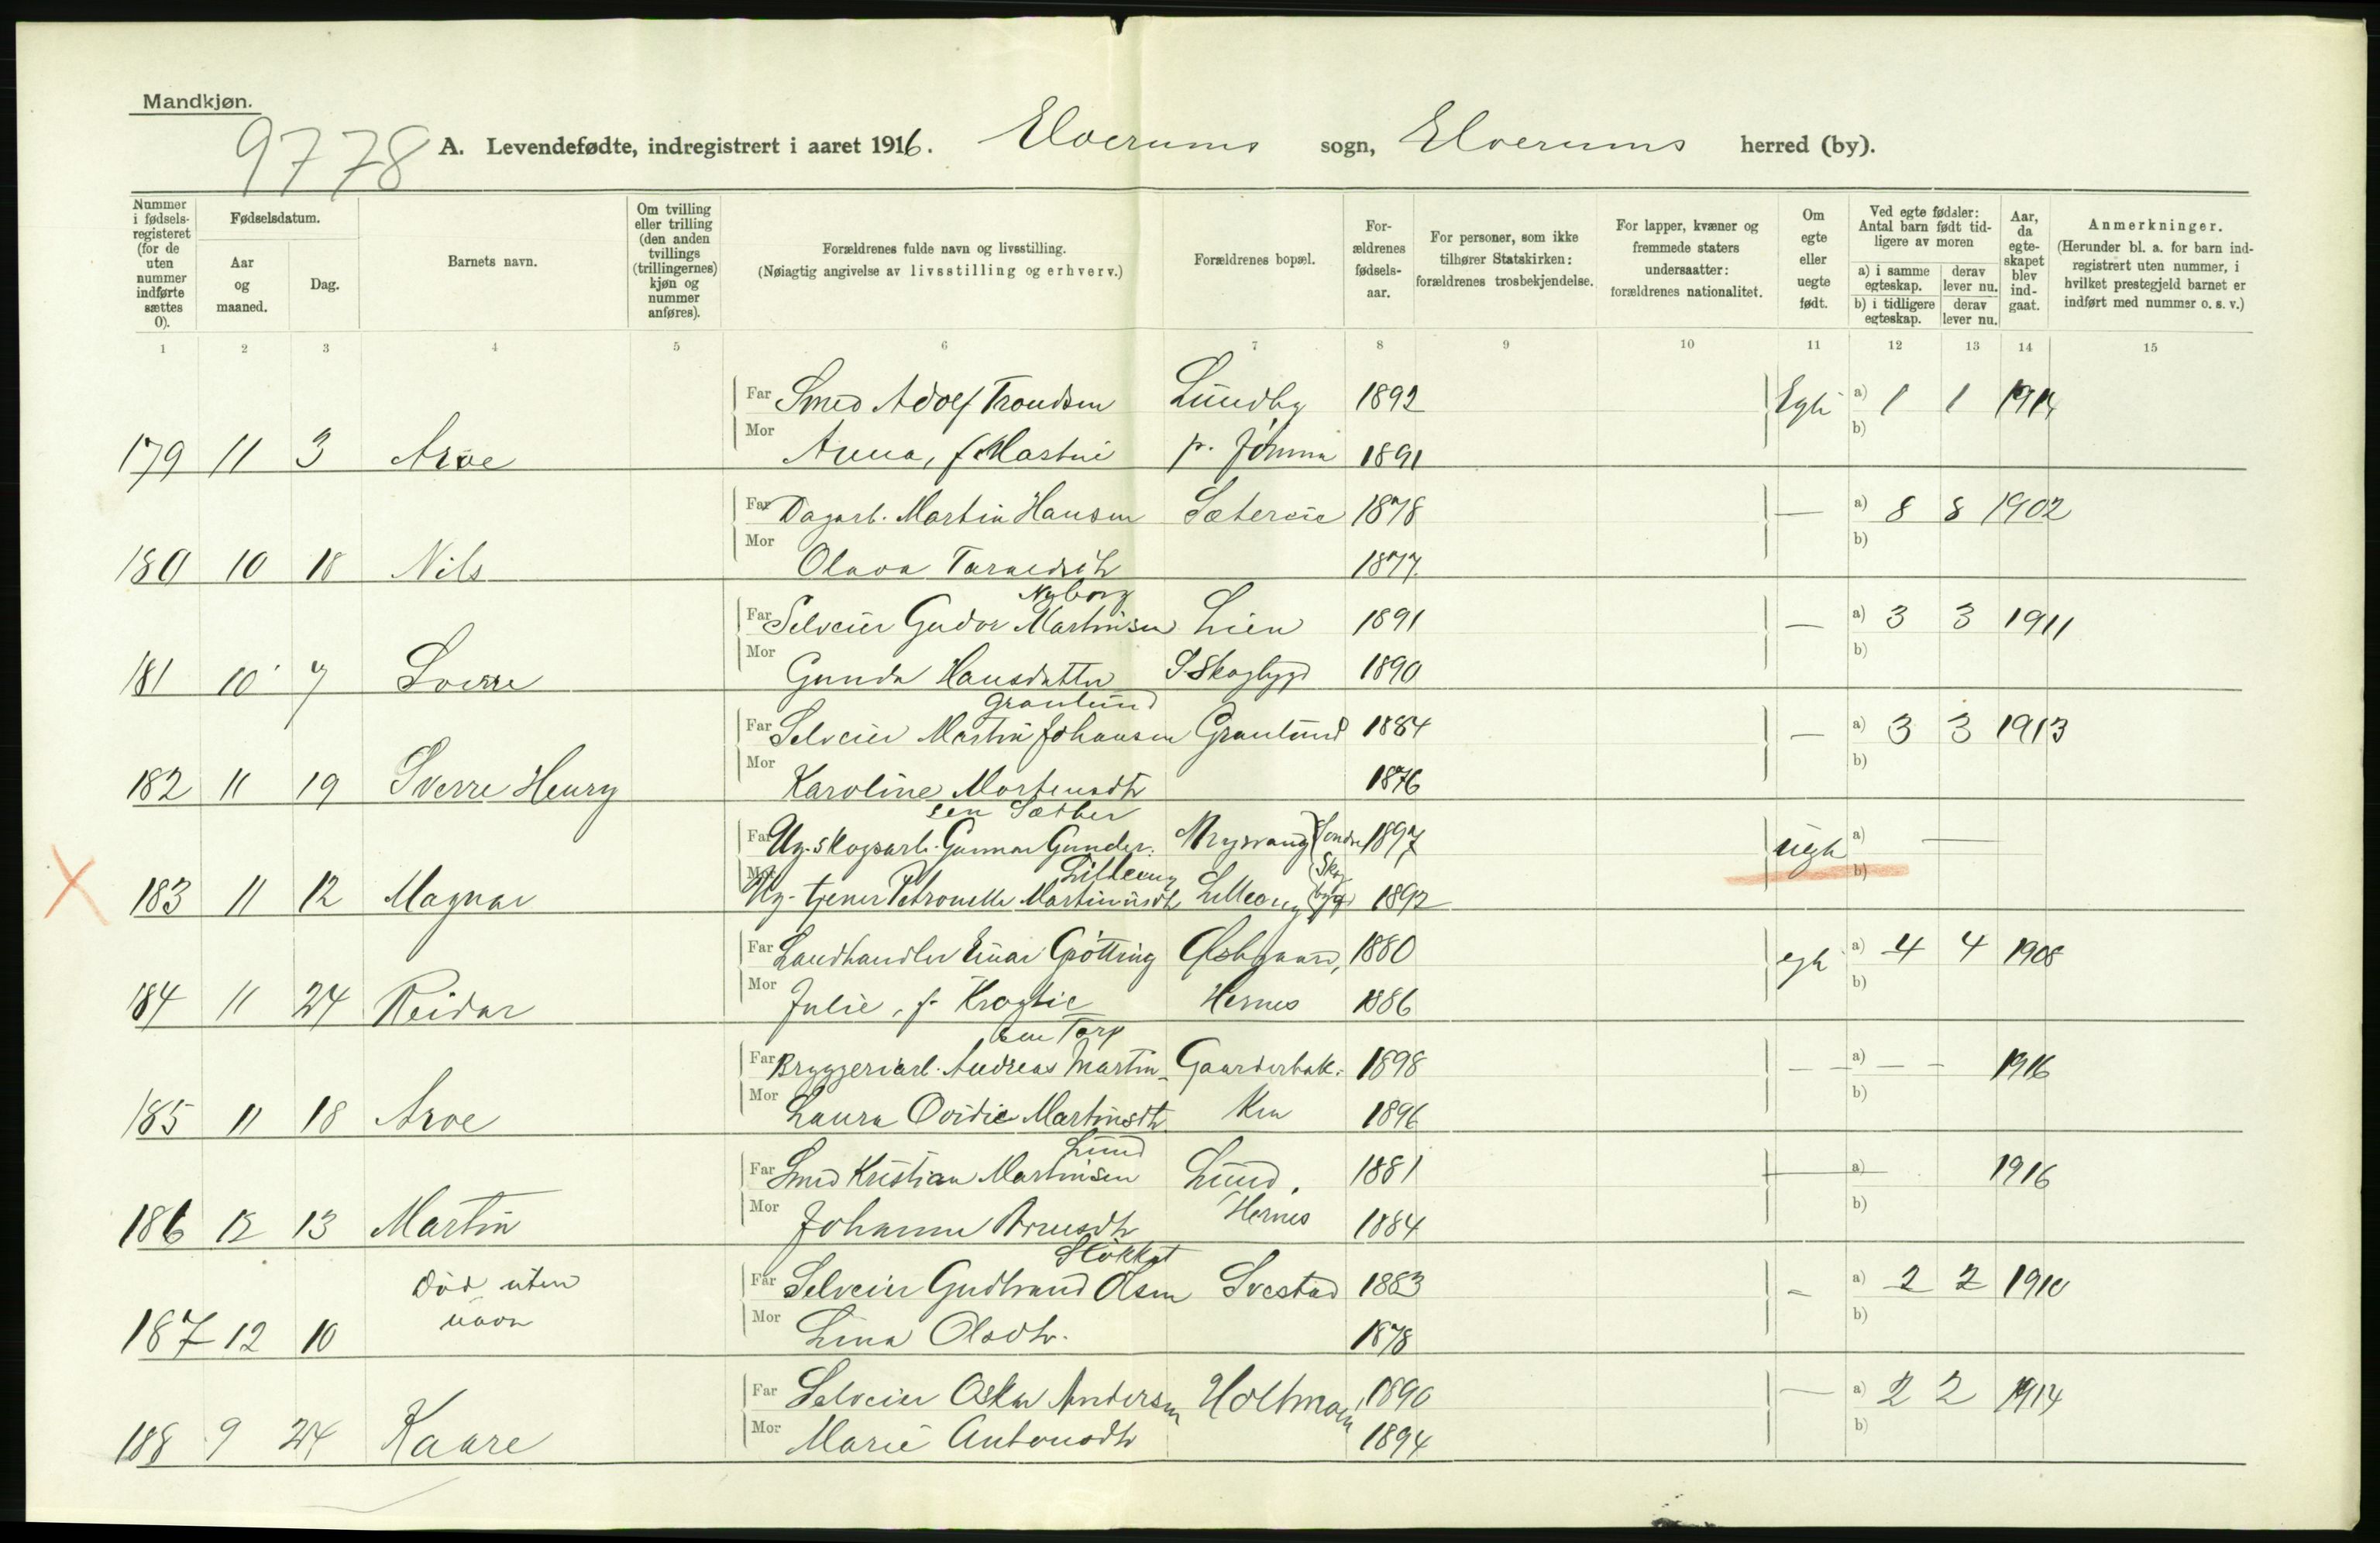 Mandkjøn.
9778
A. Levendefødte, indregistrert i aaret 1916. Elverums sogn, Elverums herred (by).
Nummer i fødsels-registeret (for de uten nummer indførte sættes 0).
Fødselsdatum.
Aar og maaned.
Dag.
Barnets navn.
Om tvilling eller trilling (den anden tvillings (trillingernes) kjøn og nummer anføres).
Forældrenes fulde navn og livsstilling.
(Nøiagtig angivelse av livsstilling og erhverv.)
Forældrenes bopæl.
For-ældrenes fødsels-aar.
For personer, som ikke tilhører Statskirken: forældrenes trosbekjendelse.
For lapper, kvæner og fremmede staters undersaatter: forældrenes nationalitet.
Om egte eller uegte født.
Ved egte fødsler: Antal barn født tid-ligere av moren
a) i samme egteskap.
derav lever nu.
b) i tidligere egteskap.
derav lever nu.
Aar, da egte-skapet blev ind-gaat.
Anmerkninger.
(Herunder bl. a. for barn ind-registrert uten nummer, i hvilket prestegjeld barnet er indført med nummer o. s. v.)
1 2 3 4 5 6 7 8 9 10 11 12 13 14 15
Far Smed Adolf Trondsen Lundby 1892 Egte a) 1 1 1914
b)
179 11 3 Arve Mor Anna, f. Martin p. Jømna 1891
Far Dagarb. Martin Hansen Sætervie 1878 — a) 8 8 1902
b)
180 10 18 Nils Mor Olava Taraldsdtr 1877
Nyborg
Far Selveier Gudor Martinsen Lien 1891 — a) 3 3 1911
b)
181 10 7 Sverre Mor Gunda Hansdatter S. Skogbygd 1890
Granlund
Far Selveier Martin Johansen Granlund 1884 — a) 3 3 1913
b)
182 11 19 Sverre Henry Mor Karoline Mortensdtr 1876
sen Sæther
Far Ug. skogsarb. Gunnar Gunder. Myrvang (Søndre 1897 uegte a) —
Lilleeng (Skog
b)
183 11 12 Magnar Mor Ug. tjener Petronelle Martinusdtr Lilleeng bygd) 1892
Far Landhandler Einar Grötting 1880 egte a) 4 4 1908
b)
184 11 24 Reidar Mor Julie, f. Hernes 1886
sen Torp
Far Bryggeriarb. Andreas Martin- Gaarderbak. 1898 — a) — — 1916
b)
185 11 18 Arve Mor Laura Ovidie Martinsdtr. Kra 1896
Lund
Far Smed Kristian Martinsen Lund, 1881 — a) — 1916
b)
186 12 13 Martin Mor Johanne Arnesdtr Hernes 1884
Stokket
Død uten Far Selveier Gudbrand Olsen Svestad 1883 — a) 2 2 1910
b)
187 12 10 navn Mor Lina Olsdtr. 1878
Far Selveier Oskar Andersen Holtmoen 1890 — a) 2 2 1914
b)
188 9 24 Kaare Mor Marie Antonsdtr 1894